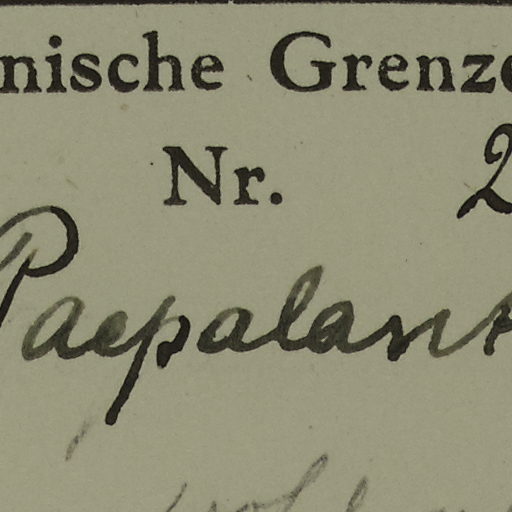 nische Grenze
Nr. 2
Paepalant